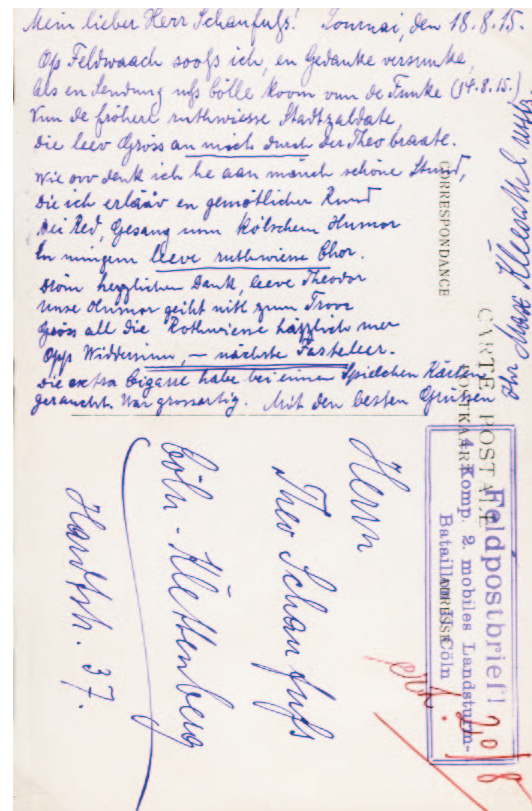 Mein lieber Herr Schaufuß! Tournai, den 18.8.15.
Op Feldwaach sooß ich, en Gedanke versunke,
als en Sendung uß Cölle koom vun de Funke (14.8.15.)
Vun de fröhere ruthwiesse Stadtzaldate
die leev Gröss an mich durch der Theo braate.
Wie ov denk ich he aan manch schöne Stund,
die ich erläāv en gemötlicher Rund
Bei Red, Gesang un Kölschem Humor
En mingem leeve ruthwiesse Chor.
Döm herzlichen Dank, leeve Theodor
Unse Humor geiht nitt zum
Gröss all die Rothwiesse hätzlich mer
Opp Widdersinn, – nächste Fasteleer.
Die extra Cigarre habe bei einem Spielchen Karten
geraucht. War grossartig. Mit den besten Grüßen
Ihr Max
CORRESPONDANCE
CARTE POSTALE
POSTKAART
ADRESSE
Feldpostbrief!
4. Komp. 2. mobiles Landsturm-
Bataillon Cöln
20/8
Herrn
Theo Schaufuß
Cöln-Klettenberg
Hardtstr. 37.